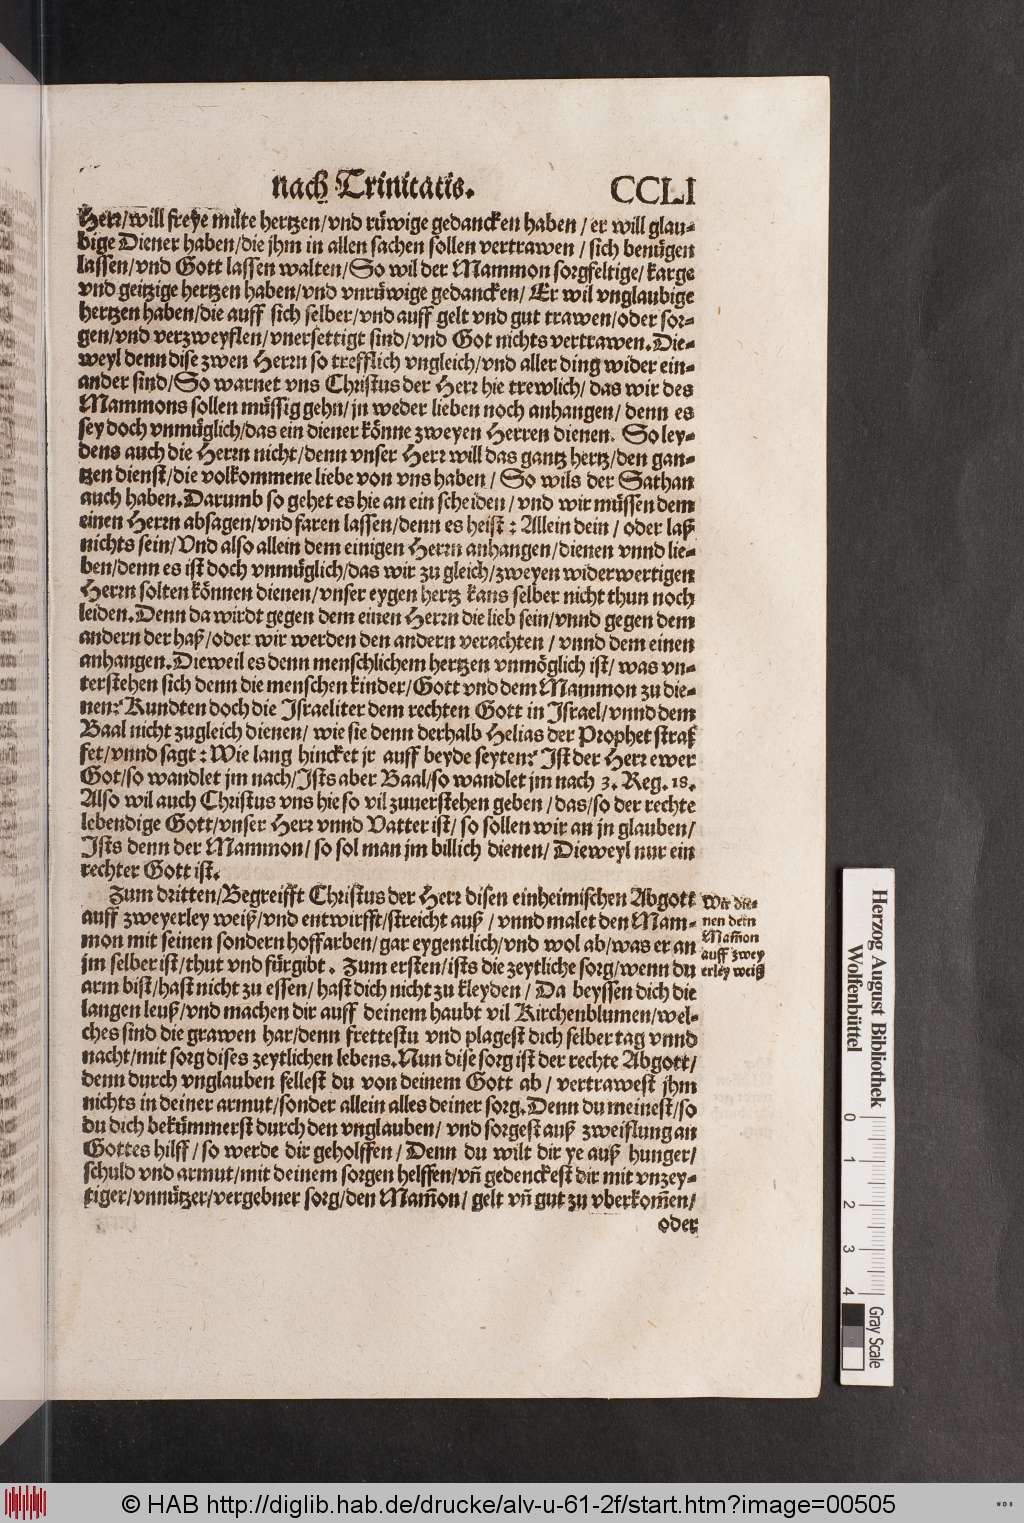 nach Trinitatis. CCLI
Herr/will freye milte hertzen/vnd rüwige gedancken haben/er will glau-
bige Diener haben/die jhm in allen sachen sollen vertrawen/sich benügen
lassen/vnd Gott lassen walten/So wil der Mammon sorgfeltige/karge
vnd geitzige hertzen haben/vnd vnrüwige gedancken/Er wil vnglaubige
hertzen haben/die auff sich selber/vnd auff gelt vnd gut trawen/oder sor-
gen/vnd verzweyflen/vnersettigt sind/vnd Got nichts vertrawen.Die-
weyl denn dise zwen Herrn so trefflich vngleich/vnd aller ding wider ein-
ander sind/So warnet vns Christus der Herr hie trewlich/das wir des
Mammons sollen müssig gehn/jn weder lieben noch anhangen/denn es
sey doch vnmüglich/das ein diener könne zweyen Herren dienen. So ley-
dens auch die Herrn nicht/denn vnser Herr will das gantz hertz/den gan-
tzen dienst/die volkommene liebe von vns haben/So wils der Sathan
auch haben.Darumb so gehet es hie an ein scheiden/vnd wir müssen dem
einen Herrn absagen/vnd faren lassen/denn es heist: Allein dein/oder laß
nichts sein/Vnd also allein dem einigen Herrn anhangen/dienen vnnd lie-
ben/denn es ist doch vnmüglich/das wir zu gleich/zweyen widerwertigen
Herrn solten können dienen/vnser eygen hertz kans selber nicht thun noch
leiden.Denn da wirdt gegen dem einen Herrn die lieb sein/vnnd gegen dem
andern der haß/oder wir werden den andern verachten/vnnd dem einen
anhangen.Dieweil es denn menschlichem hertzen vnmöglich ist/was vn-
terstehen sich denn die menschen kinder/Gott vnd dem Mammon zu die-
nen? Kundten doch die Israeliter dem rechten Gott in Israel/vnnd dem
Baal nicht zugleich dienen/wie sie denn derhalb Helias der Prophet straf
fet/vnnd sagt: Wie lang hincket jr auff beyde seyten? Ist der Herr ewer
Got/so wandlet jm nach/Ists aber Baal/so wandlet jm nach 3. Reg. 18.
Also wil auch Christus vns hie so vil zuuerstehen geben/das/so der rechte
lebendige Gott/vnser Herr vnnd Vatter ist/so sollen wir an jn glauben/
Ists denn der Mammon/so sol man jm billich dienen/Dieweyl nur ein
rechter Gott ist.
Zum dritten/Begreifft Christus der Herr disen einheimischen Abgott
auff zweyerley weiß/vnd entwirfft/streicht auß/vnnd malet den Mam-
mon mit seinen sondern hoffarben/gar eygentlich/vnd wol ab/was er an
jm selber ist/thut vnd fürgibt. Zum ersten/ists die zeytliche sorg/wenn du
arm bist/hast nicht zu essen/hast dich nicht zu kleyden/Da beyssen dich die
langen leuß/vnd machen dir auff deinem haubt vil Kirchenblumen/wel-
ches sind die grawen har/denn frettestu vnd plagest dich selber tag vnnd
nacht/mit sorg dises zeytlichen lebens.Nun dise sorg ist der rechte Abgott/
denn durch vnglauben fellest du von deinem Gott ab/vertrawest jhm
nichts in deiner armut/sonder allein alles deiner sorg.Denn du meinest/so
du dich bekümmerst durch den vnglauben/vnd sorgest auß zweiflung an
Gottes hilff/so werde dir geholffen/Denn du wilt dir ye auß hunger/
schuld vnd armut/mit deinem sorgen helffen/vñ gedenckest dir mit vnzey-
tiger/vnnützer/vergebner sorg/den Mam̃on/gelt vñ gut zu vberkom̃en/
oder
Wir die-
nen dem
Mam̃on
auff zwey
erley weiß
Herzog August Bibliothek
Wolfenbüttel
0 1 2 3 4
Gray Scale
© HAB http://diglib.hab.de/drucke/alv-u-61-2f/start.htm?image=00505
WDB